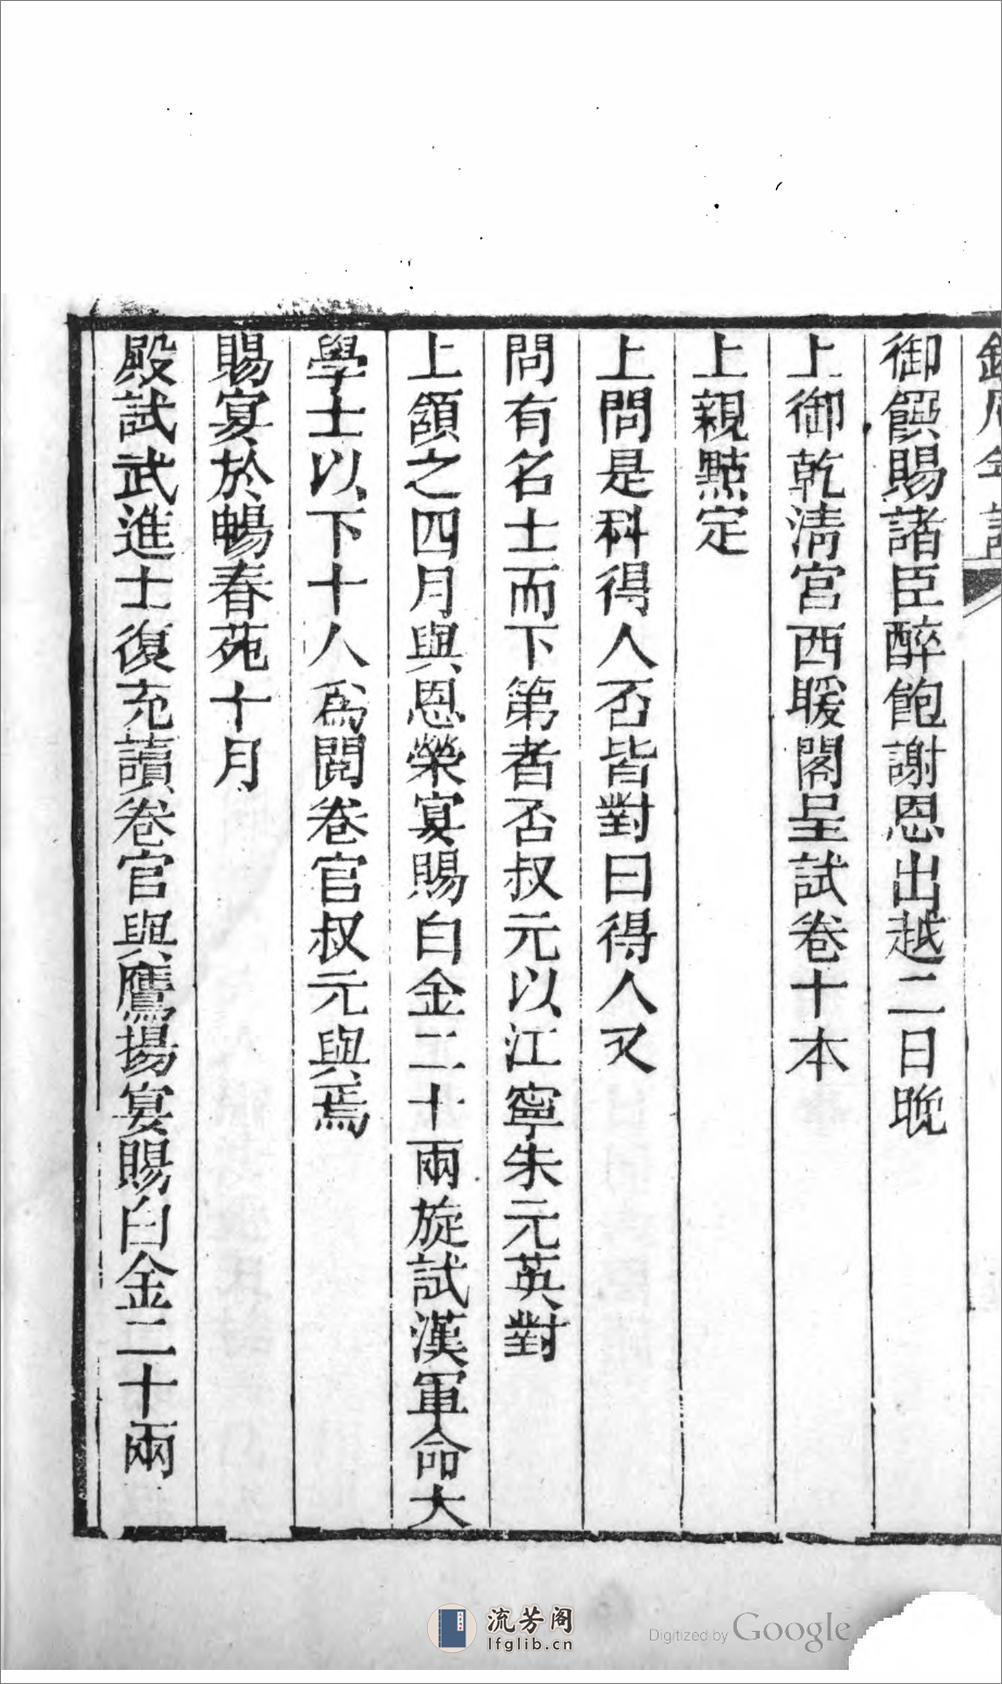 御饌賜諸臣醉飽謝恩出越二日晚
上御乾淸宮西暖閣呈試卷十本
上親點定
上問是科得人否皆對曰得人又
問有名士而下第者否叔元以江寧朱元英對
上頷之四月與恩榮宴賜白金二十兩旋試漢軍命大
學士以下十人爲閱卷官叔元與焉
賜宴於暢春苑十月
殿試武進士復充讀卷官與鷹揚宴賜白金二十兩
流芳阁
lfglib.cn
Digitized by Google